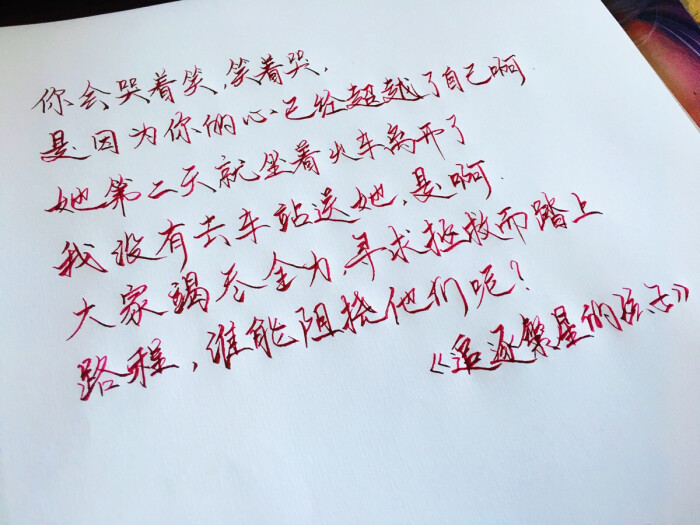 你会哭着笑,笑着哭,
是因为你的心已经超越了自己啊
她第二天就坐着火车离开了
我没有去车站送她,是啊
大家竭尽全力,寻求拯救而踏上
路程,谁能阻挠他们呢?
《追逐繁星的孩子》